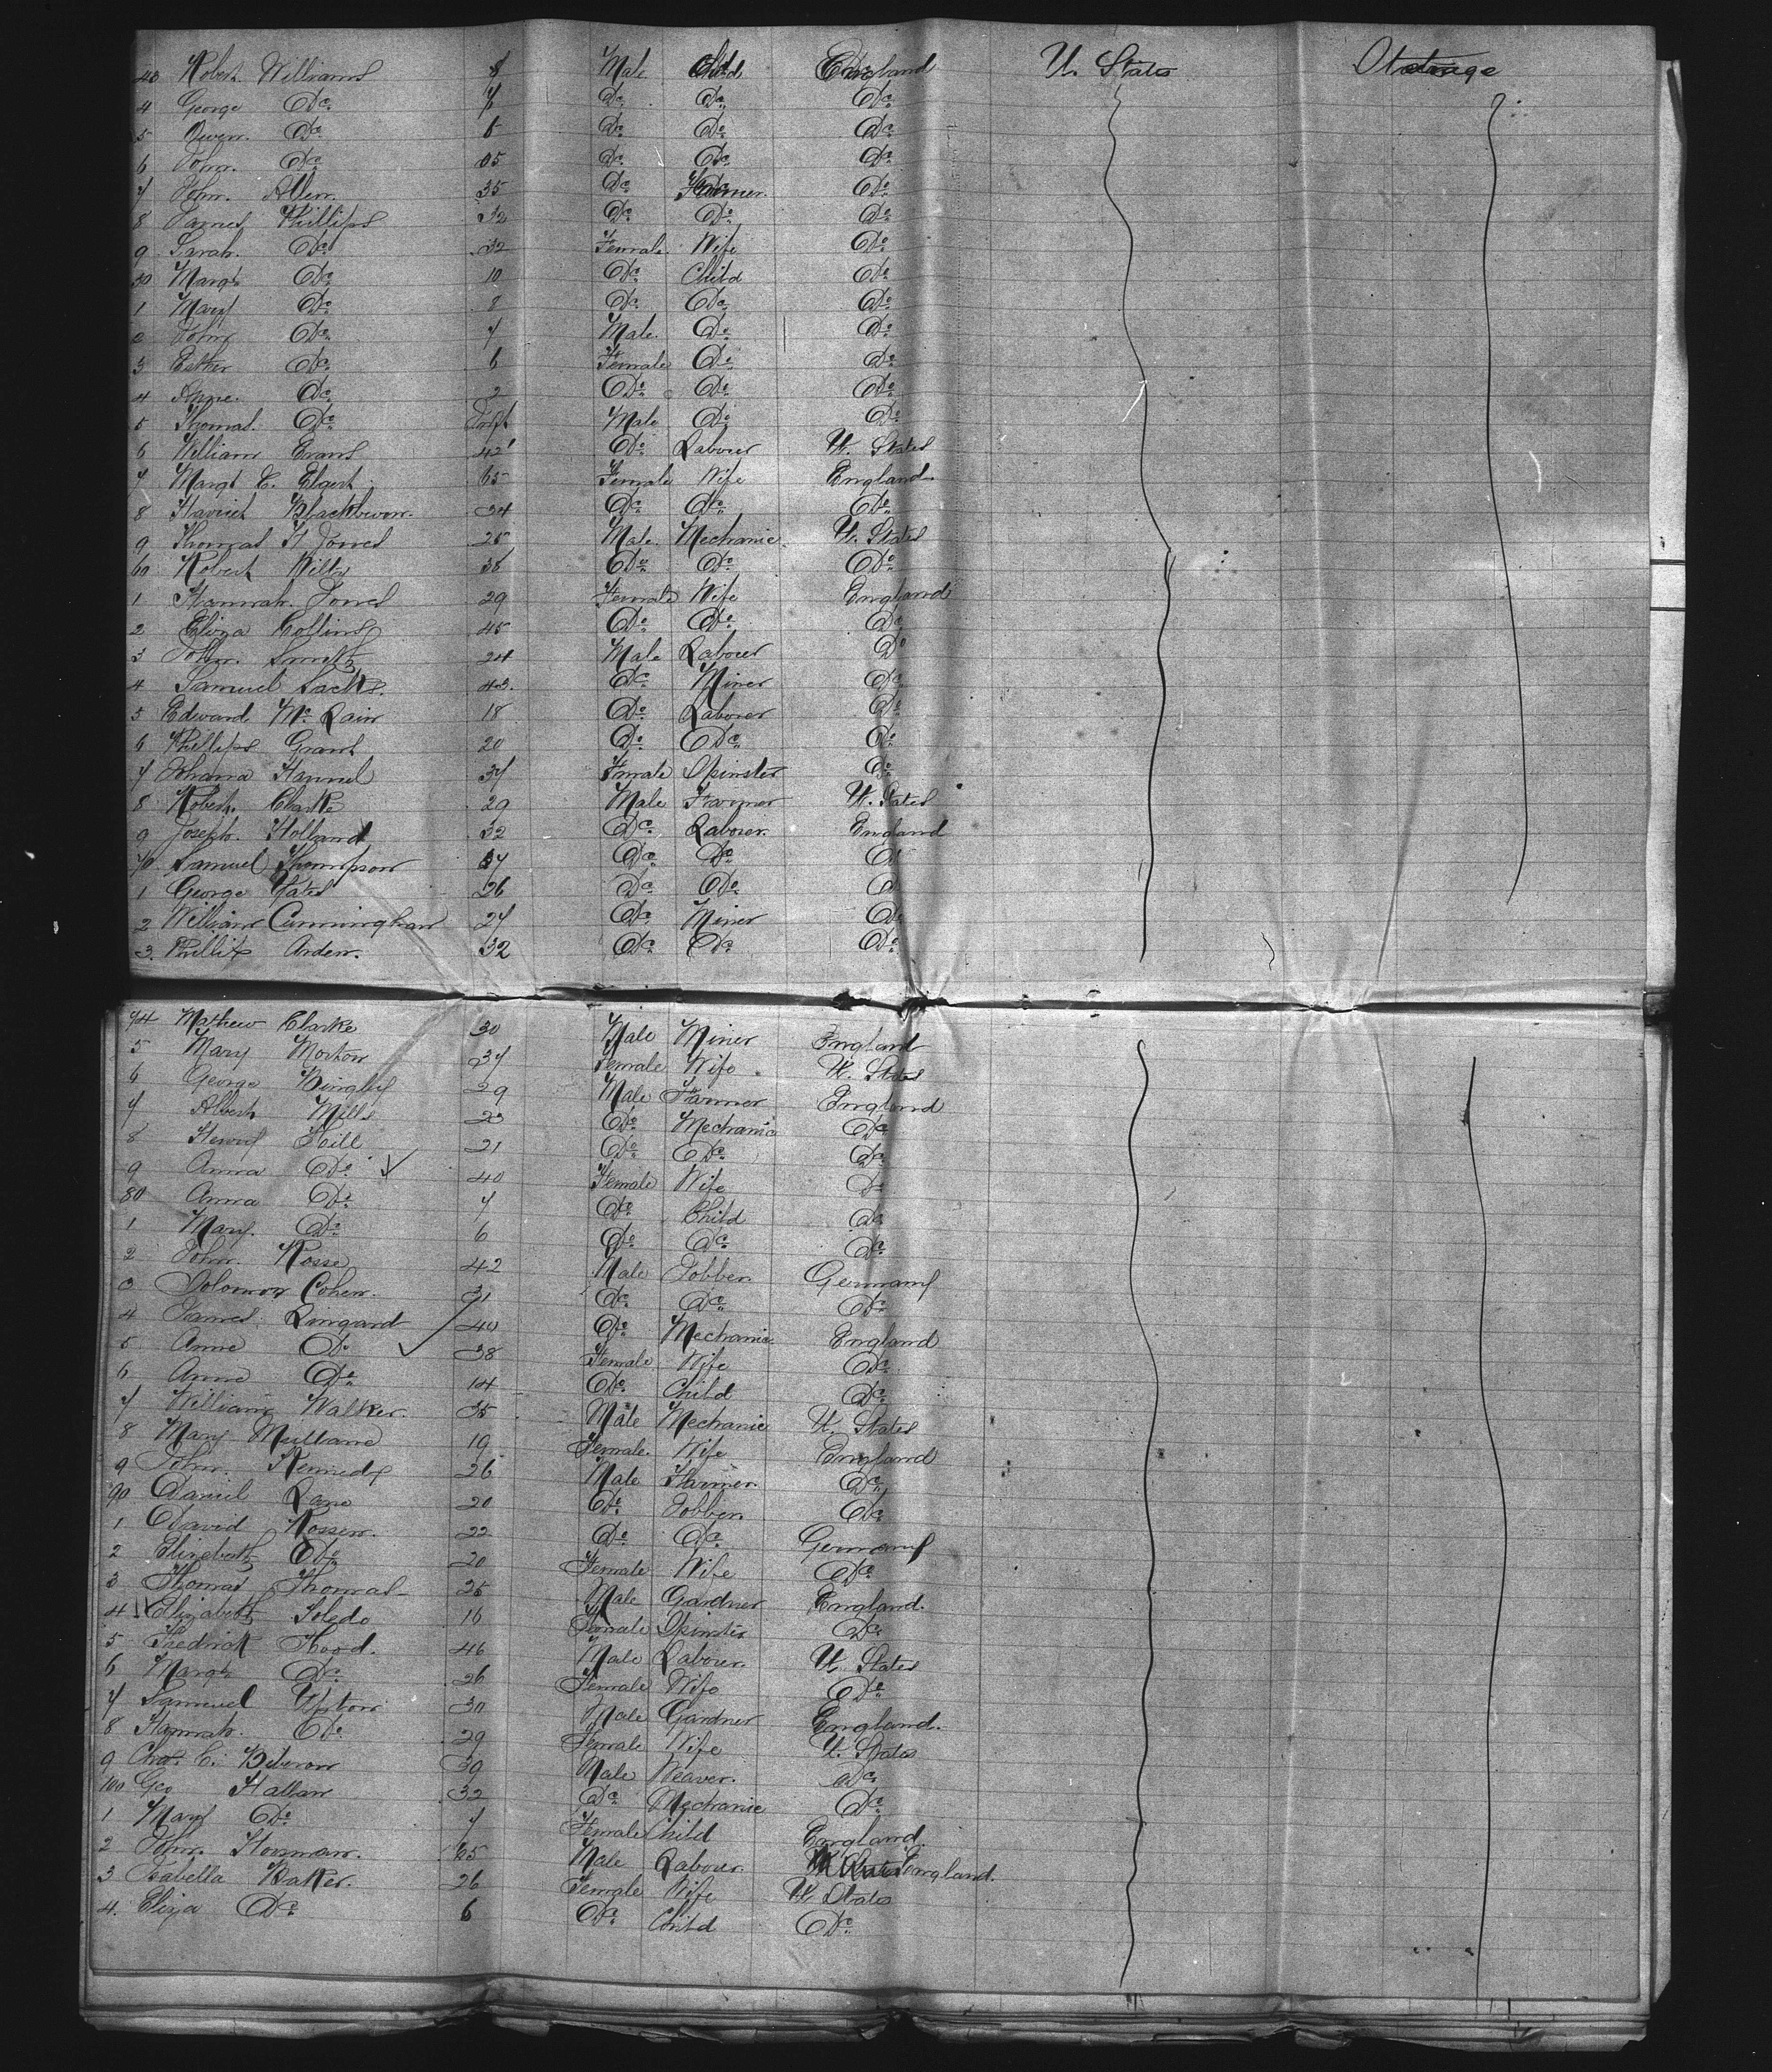 43 Robert Williams 8 Male Child England U. States Steerage
4 George Do 7 Do Do Do
5 Owen Do 5 Do Do Do
6 John Do Do Do Do
7 John Allen 35 Do Farmer Do
8 James Phillips 32 Do Do Do
9 Sarah Do 32 Female Wife Do
50 Margt Do 10 Do Child Do
1 Mary Do 8 Do Do Do
2 John Do 7 Male Do Do
3 Esther Do 6 Female Do Do
4 Anne Do 2 Do Do Do
5 Thomas Do Inft Male Do Do
6 William Evans 42 Do Labour U. States
7 Margt E. Elgert 65 Female Wife England
8 Harriet 24 Do Do Do
9 Thomas H Jones 25 Male Mechanic U. States
60 Robert Wilts 38 Do Do Do
1 Hannah Jones 29 Female Wife England
2 Eliza Collins 45 Do Do Do
3 John Smith 24 Male Labour Do
4 Samuel Sacks 43 Do Miner Do
5 Edward Mc Lain 18 Do Laborer Do
6 Phillips Grant 20 Do Do Do
7 Johana Hammel 37 Female Spinster Do
8 Robert Clarke 29 Male Farmer U. States
9 Joseph Holland 32 Do Laborer England
70 Samuel Thompson 37 Do Do Do
1 George Yates 26 Do Do Do
2 William Cunningham 27 Do Miner Do
3 Phillip Arden 32 Do Do Do
74 Mathew Clarke 30 Male Miner England
5 Mary Morton 37 Female Wife U. States
6 George Bingley 29 Male Farmer England
7 Albert Mills 23 Do Mechanic Do
8 Henry Hill 21 Do Do Do
9 Anna Do 40 Female Wife Do
80 Anna Do 7 Do Child Do
1 Mary Do 6 Do Do Do
2 John Rosse 42 Male Jobber Germany
3 Solomon Cohen 31 Do Do Do
4 James Lingard 40 Do Mechanic England
5 Anne Do 38 Female Wife Do
6 Anne Do 14 Do Child Do
7 William Walker 35 Male Mechanic U. States
8 Mary 19 Female Wife England
9 John Kennedy 26 Male Farmer Do
90 Daniel Lane 20 Do Jobber Do
1 David Rosser 22 Do Do Germany
2 Elizabeth Do 20 Female Wife Do
3 Thomas Thomas 25 Male Gardner England
4 Elizabeth Toledo 16 Female Spinster Do
5 Fredrick Hood 46 Male Labour U. States
6 Margt Do 26 Female Wife Do
7 Samuel Upton 30 Male Gardner England
8 Hannah Do 29 Female Wife U. States
9 Chas C. 30 Male Weaver Do
100 Geo Hallam 32 Do Mechanic Do
1 Mary Do 7 Female Child England
2 John Horsman 65 Male Labour England
3 Isabella Baker 26 Female Wife U States
4 Eliza Do 6 Do Child Do